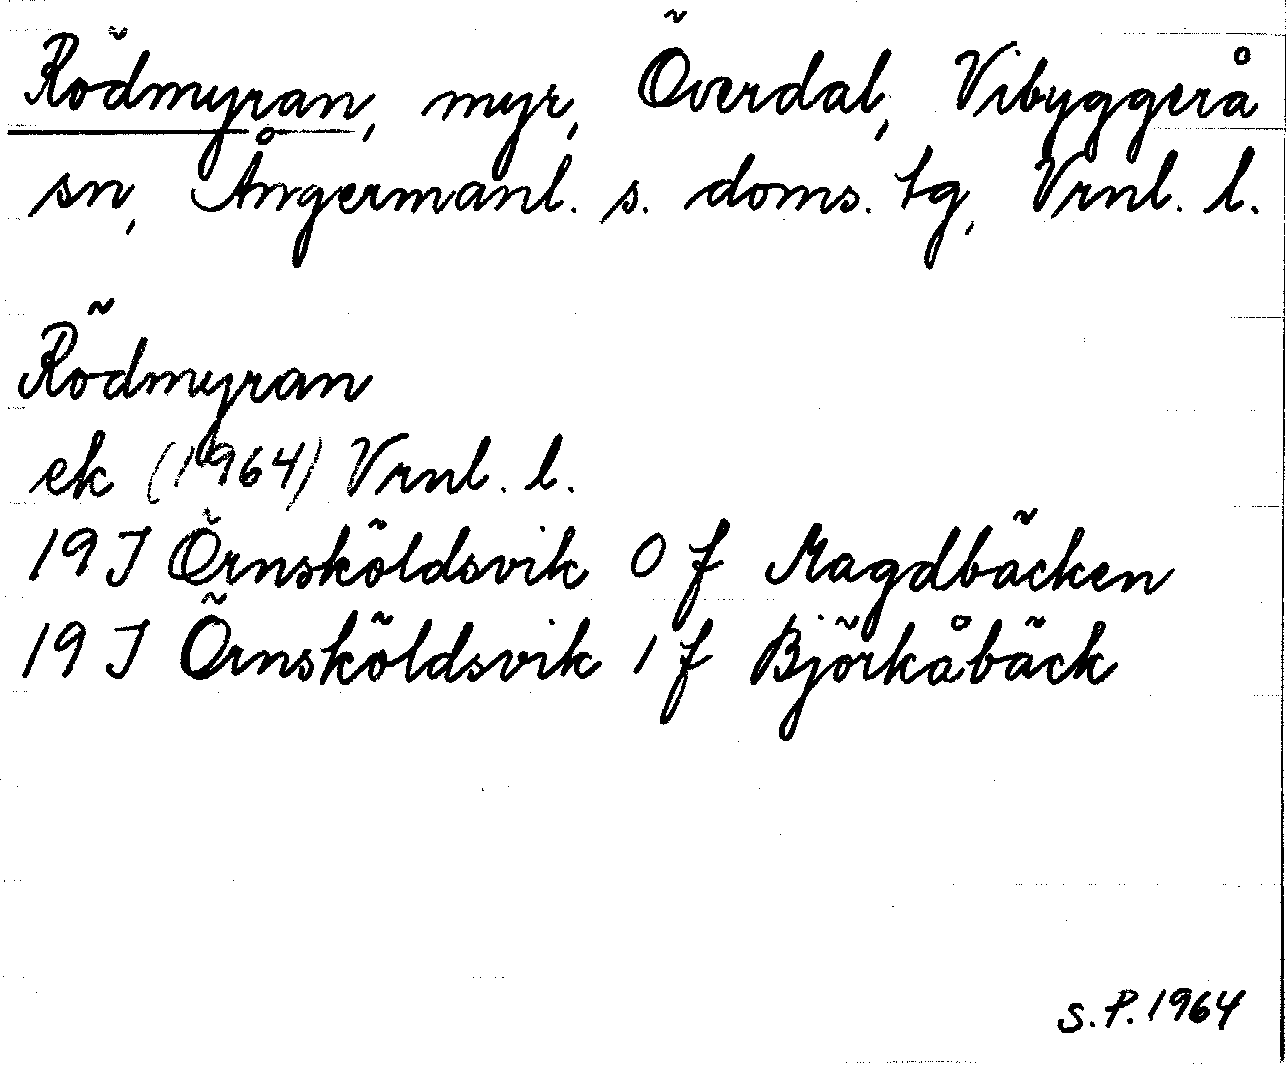 Rödmyran, myr, Överdal, Vibyggerå
sn, Ångermanl. s. doms. tg, Vrnl. l.
Rödmyran
ek (1964) Vrnl. l.
19 J Örnsköldsvik 0 f Magdbäcken
19 J Örnsköldsvik 1 f Björkåbäck
S. P. 1964